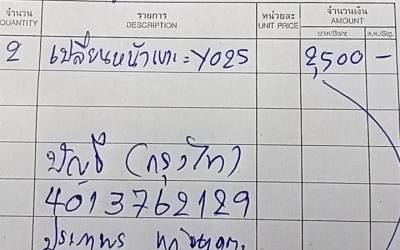 จำนวน รายการ หน่วยละ จำนวนเงิน
QUANTITY DESCRIPTION UNIT PRICE AMOUNT
บาท/Baht ส.ต./Stg.
2 เปลี่ยนหน้าเบาะ = Y025 2,500 -
บัญชี (กรุงไทย)
4013762129